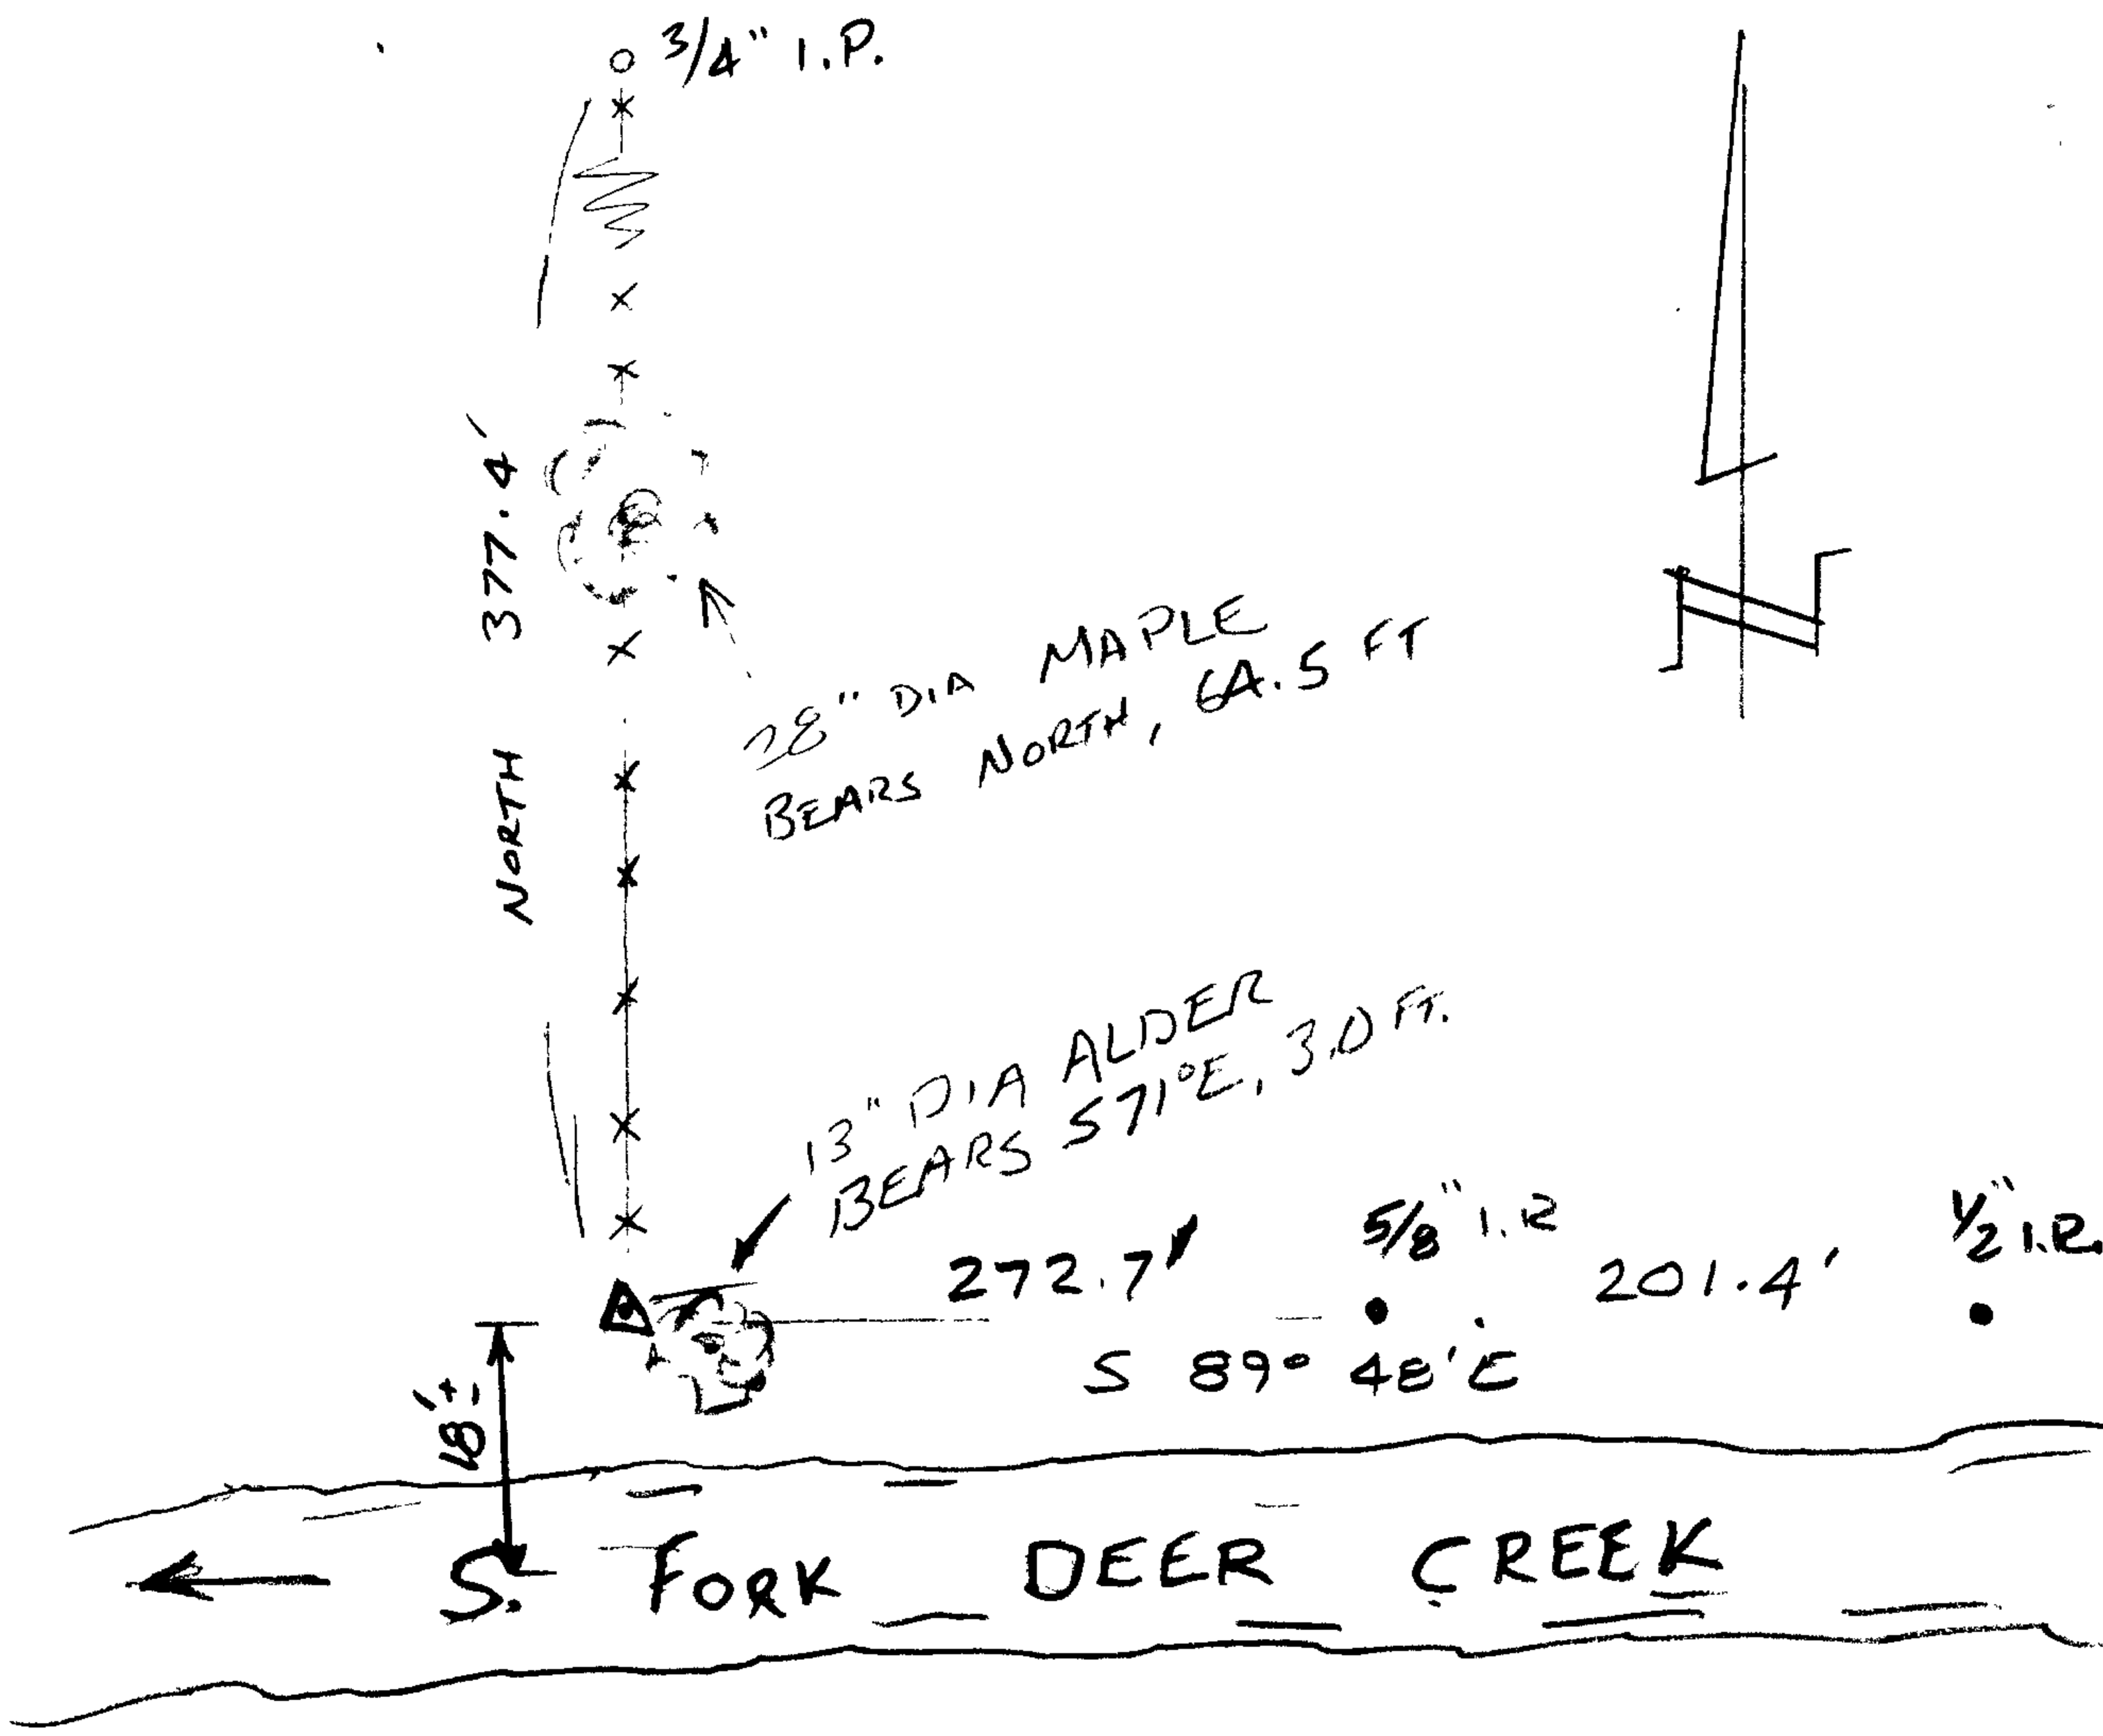 3/4" I.P.
NORTH 377.4'
N
28" DIA MAPLE
BEARS NORTH, 64.5 FT
13" DIA ALDER
BEARS S71°E, 3.0 FT.
272.7'
5/8" I.R
201.4'
1/2" I.R.
S 89° 48' E
18'±
S. FORK DEER CREEK